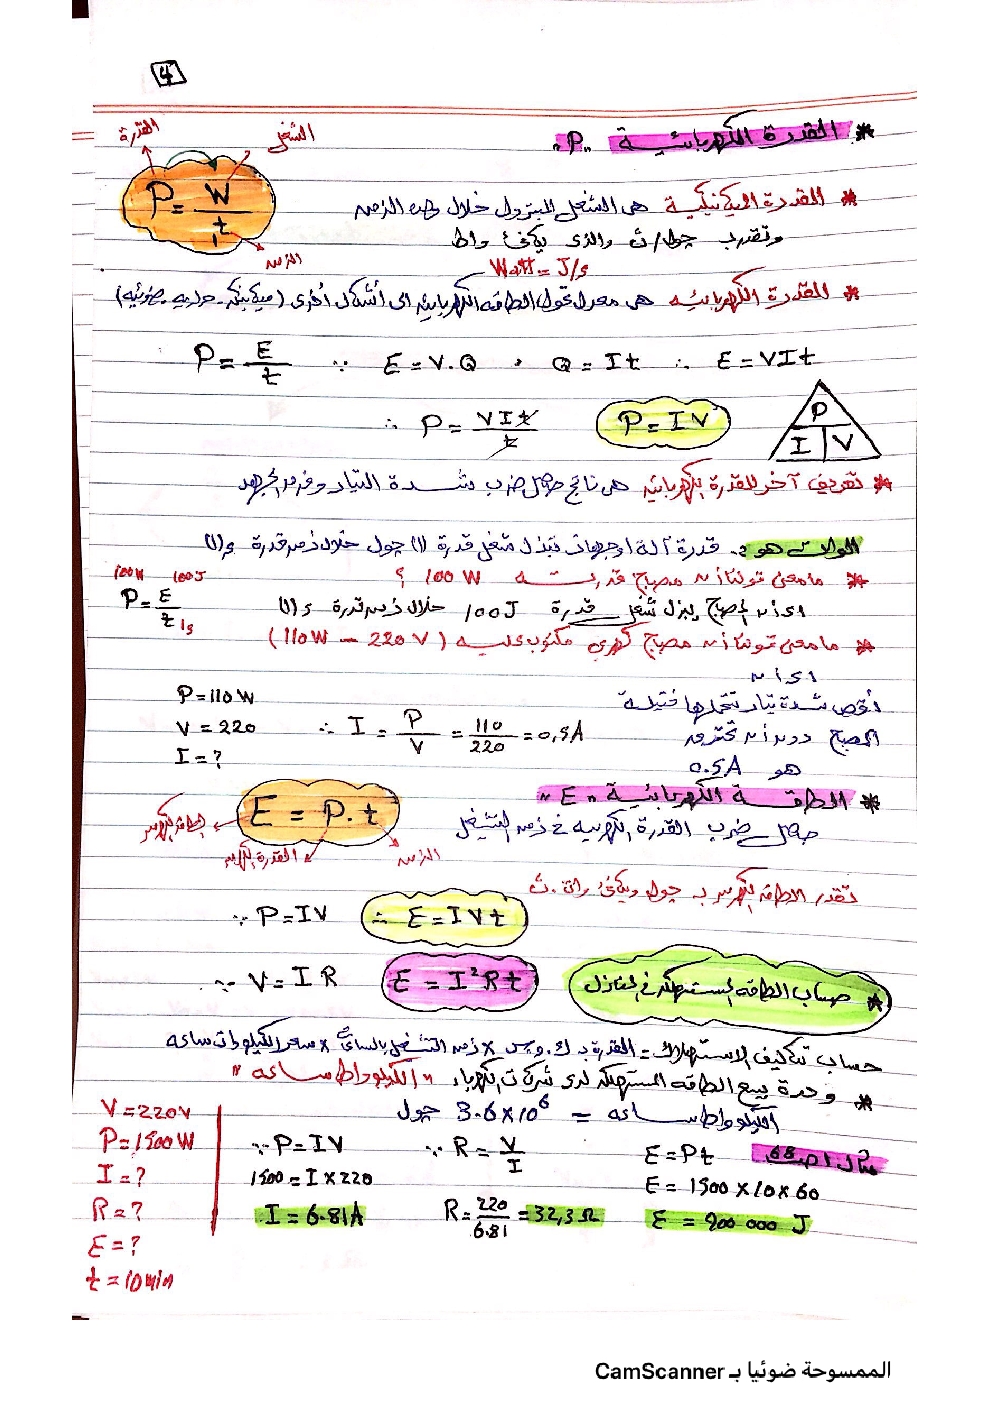 4
* القدرة الكهربائية "P"
القدرة
الشغل
P = W / t
الزمن
* القدرة الميكانيكية هي الشغل المبذول خلال وحدة الزمن
وتقدر بـ جول/ث والذي يكافئ واط
Watt = J/s
* القدرة الكهربائيه هي معدل تحول الطاقه الكهربائيه الى أشكال أخرى (ميكانيكيه - حراريه - ضوئيه)
P = E / t ∵ E = V.Q , Q = It ∴ E = VIt
∴ P = VIt / t P = IV
P I V
* تعريف آخر للقدرة الكهربائيه هي ناتج حاصل ضرب شدة التيار وفرق الجهد
الوات هو :- قدرة آلة او جهاز تبذل شغل قدرة (1) جول خلال زمن قدرة (1) s
* ما معنى قولنا أن مصباح قدرته 100 W ؟
100W 100J
P = E / t 1s
اي أن المصباح يبذل شغل قدرة 100J خلال زمن قدرة (1) s
* ما معنى قولنا أن مصباح كهربي مكتوب عليه (110W – 220V)
اي أن
أقصى شدة تيار تتحملها فتيلة
المصباح دون أن تحترق
هو 0.5A
P = 110 W
V = 220
I = ?
∴ I = P / V = 110 / 220 = 0,5A
* الطاقة الكهربائية "E"
E = P.t
القدرة الكهربيه
الزمن
حاصل ضرب القدرة الكهربيه في زمن التشغيل
تقدر الطاقه الكهربيه بـ جول ويكافئ وات.ث
∵ P = IV ∴ E = IVt
∵ V = IR E = I²Rt
* حساب الطاقه المستهلكه في المنازل
حساب تكاليف الاستهلاك = القدرة بـ ك.وس × زمن التشغيل بالساعة × سعر الكيلووات ساعه
* وحدة بيع الطاقه المستهلكه لدى شركات الكهرباء "الكيلو واط ساعه"
1 كيلو واط ساعه = 3.6×10⁶ جول
مثال 1 ص 68
V = 220V
P = 1500 W
I = ?
R = ?
E = ?
t = 10min
∵ P = IV
1500 = I × 220
I = 6.81A
∵ R = V / I
R = 220 / 6.81 = 32,3 Ω
E = Pt
E = 1500 × 10 × 60
E = 900 000 J
الممسوحة ضوئيا بـ CamScanner